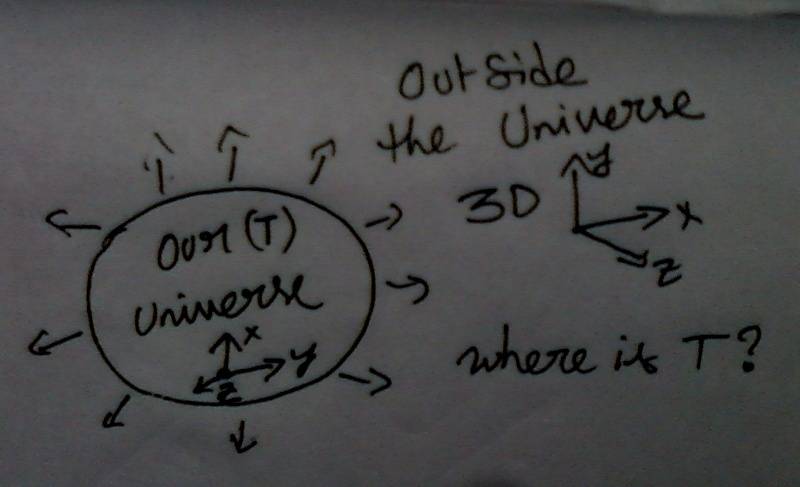 Outside
the Universe
3D
y
x
z
Our (T)
Universe
x
y
z
where is T?